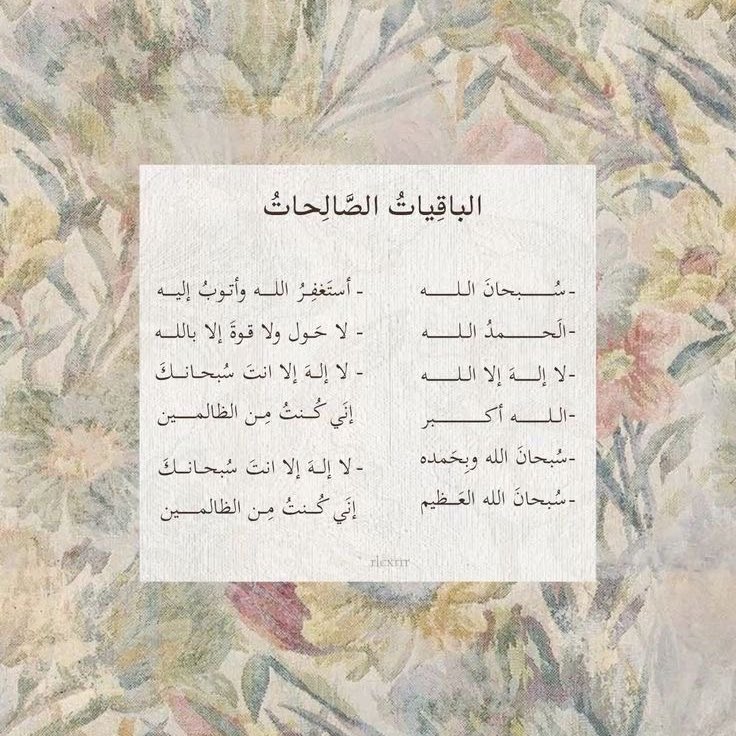 الباقِياتُ الصَّالِحاتُ
-سُبحانَ الله
-الَحمدُ الله
-لا إلهَ إلا الله
-الله أكبر
-سُبحانَ الله وبِحَمده
-سُبحانَ الله العَظيم
- أستَغفِرُ الله وأتوبُ إليه
- لا حَول ولا قوةَ إلا بالله
- لا إلهَ إلا انتَ سُبحانكَ
إنَي كُنتُ مِن الظالمين
- لا إلهَ إلا انتَ سُبحانكَ
إنَي كُنتُ مِن الظالمين
rlexrrr